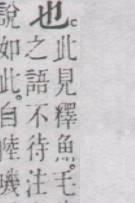 也。此見釋魚。毛
之語不待注
說如此。自陸璣